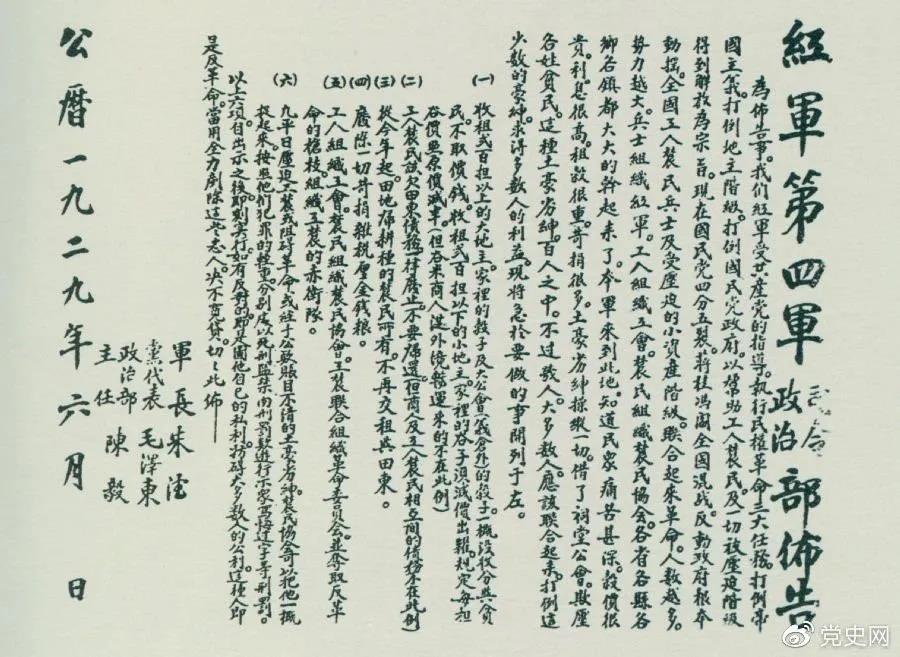 紅軍第四軍司令政治部佈告
為佈告事。我們紅軍受共產黨的指導。執行民權革命三大任務。打倒帝
國主義。打倒地主階級。打倒國民黨政府。以幫助工人農民及一切被壓迫階級
得到解放為宗旨。現在國民黨四分五裂。蔣桂馮閻全國混战。反動政府根本
動摇。全國工人農民兵士及受壓迫的小資產階級。聯合起來革命。人数越多。
勢力越大。兵士組織紅軍。工人組織工會。農民組織農民協會。各省各縣各
鄉各鎮都大大的幹起来了。本軍来到此地。知道民衆痛苦甚深。穀價很
貴。利息很高。租穀很重。苛捐很多。土豪劣紳操縱一切。借了祠堂公會。欺壓
各姓貧民。這種土豪劣紳。百人之中。不过数人。大多数人。應該联合起来。打倒這
少数的豪紳。求得多数人的利益。現將急於要做的事開列于左。
(一) 收租弍百担以上的大地主。家裡的穀子及大公會(義倉外)的穀子一概沒收分與貧
民。不取價錢。收租弍百担以下的小地主。家裡的谷子須減價出糶。規定每担
谷價照原價減半。(但谷米商人從外境辦運來的不在此例)
(二) 工人農民該欠田東債務一律廢止。不要歸還。(但商人及工人農民相互間的債務不在此例)
(三) 從今年起。田地歸耕種的農民所有。不再交租與田東。
(四) 廢除一切苛捐雜税厘金錢粮。
(五) 工人組織工會。農民組織農民協會。工農聯合組織革命委員會。並奪取反革
命的槍枝。組織工農的赤衛隊。
(六) 凡平日壓迫工農或阻碍革命。或經手公欵賬目不清的土豪劣紳。農民協會可以把他一概
捉起來。按照他们犯罪的輕重。分別處以死刑監禁肉刑罰欵遊行示衆寫悔过字等刑罰。
以上六項自出示之後即刻实行。如有反對的。即是圖他自已的私利。妨碍大多数人的公利。這種人即
是反革命。當用全力剷除這些惡人。决不寬貸。切切此佈——
軍長 朱德
黨代表 毛澤東
政治部主任 陳毅
公曆一九二九年六月 日
党史网